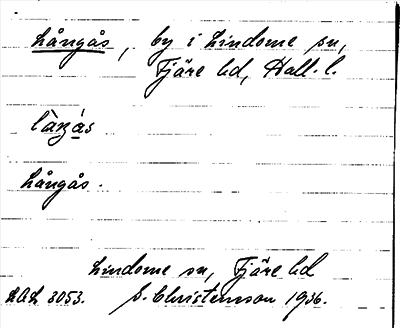 Långås, by i Lindome sn,
Fjäre hd, Hall. l.
Långås.
Lindome sn, Fjäre hd
3053. S. Christenson 1936.